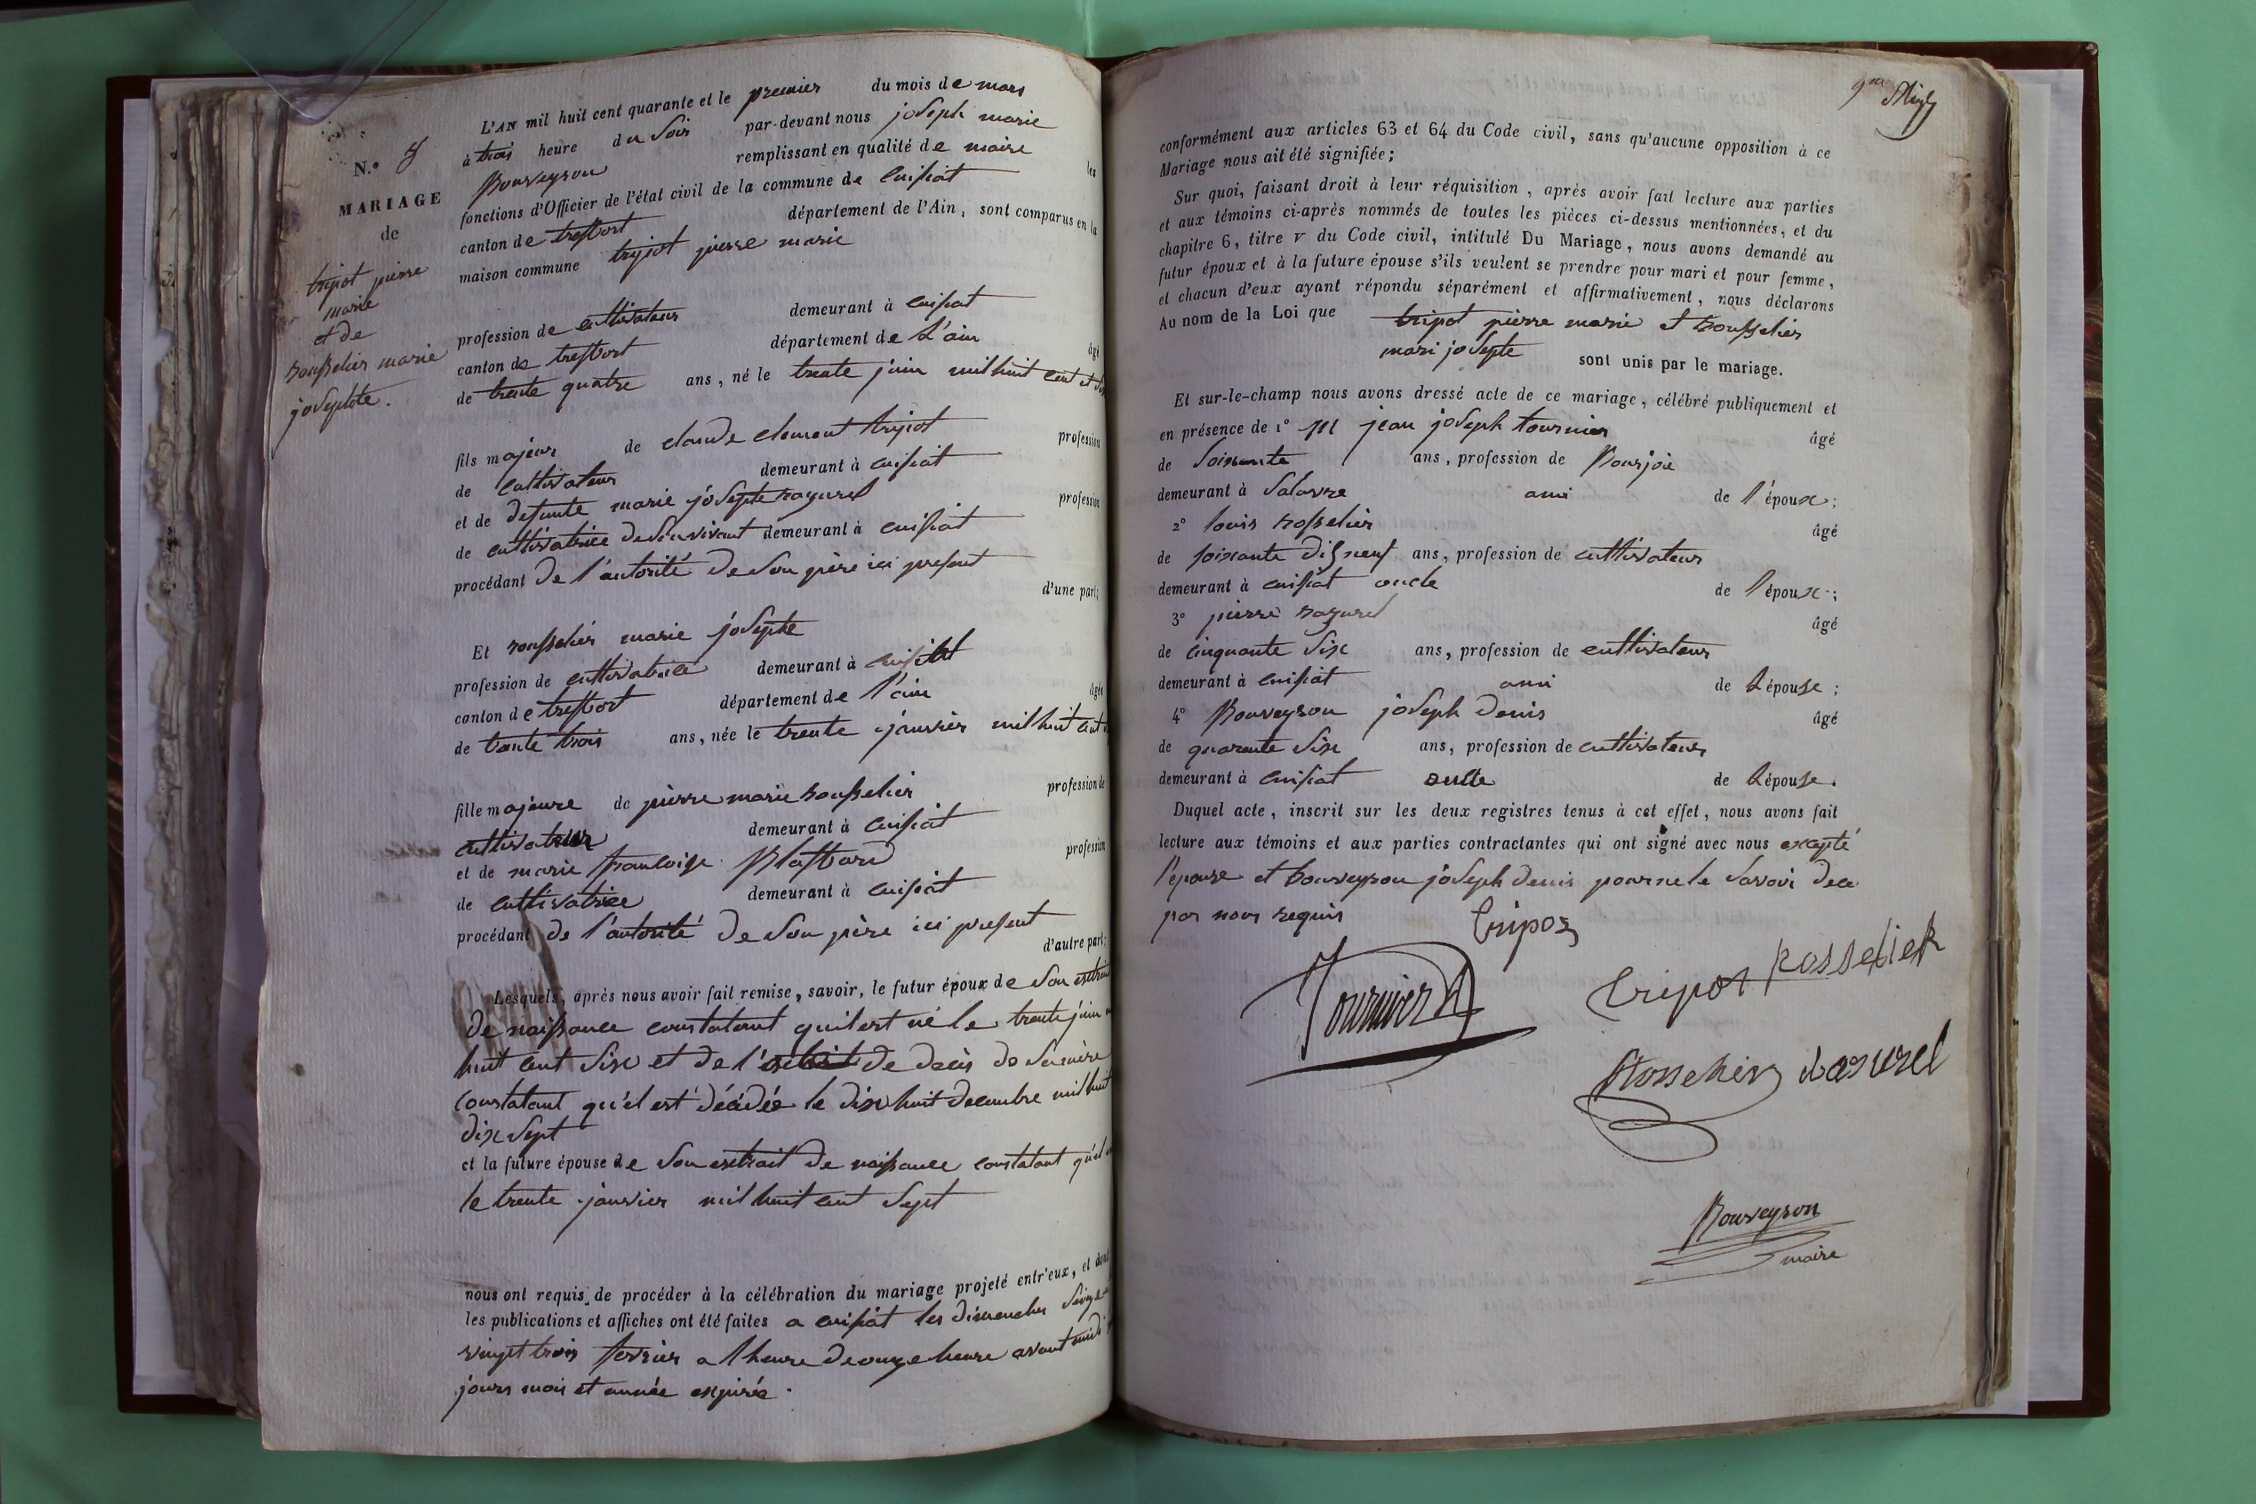 L'AN mil huit cent quarante et le premier du mois de mars
N.º
à trois heure du soir par-devant nous joseph marie
Bouveyron remplissant en qualité de maire les
MARIAGE
fonctions d'Officier de l'état civil de la commune de Cuisiat
de
canton de treffort département de l'Ain, sont comparus en la
maison commune tripot pierre marie
tripot pierre
marie
et de
rousselier marie
josephte.
profession de cultivateur demeurant à Cuisiat
canton de treffort département de L'ain âgé
de trente quatre ans, né le trente juin mil huit cent et six
fils majeur de claude clement tripot profession
de cultivateur demeurant à cuisiat
et de defunte marie josephte razurel profession
de cultivatrice de son vivant demeurant à cuisiat
procédant de l'autorité de son père ici present
d'une part;
Et rousselier marie josephte
profession de cultivatrice demeurant à cuisiat
canton de treffort département de l'ain âgée
de trente trois ans, née le trente janvier mil huit cent
fille majeure de pierre marie rousselier profession de
cultivateur demeurant à cuisiat
et de marie francoise profession
de cultivatrice demeurant à cuisiat
procédant de l'autorité de son père ici present
d'autre part;
Lesquels, après nous avoir fait remise, savoir, le futur époux de son extrait
de naissance constatant quil est né le trente juin
huit cent six et de l'extrait de decès de sa mère
constatant qu'el est décédée le dix huit decembre mil huit
dix sept
et la future épouse de son extrait de naissance constatant qu'el
le trente janvier mil huit cent sept
nous ont requis de procéder à la célébration du mariage projeté entr'eux, et dont
les publications et affiches ont été faites a cuisiat les dimanches seize
vingt trois fevrier a l'heure de onze heure avant midi
jours mois et année expirée.
conformément aux articles 63 et 64 du Code civil, sans qu'aucune opposition à ce
Mariage nous ait été signifiée;
Sur quoi, faisant droit à leur réquisition, après avoir fait lecture aux parties
et aux témoins ci-après nommés de toutes les pièces ci-dessus mentionnées, et du
chapitre 6, titre v du Code civil, intitulé Du Mariage, nous avons demandé au
futur époux et à la future épouse s'ils veulent se prendre pour mari et pour femme,
et chacun d'eux ayant répondu séparément et affirmativement, nous déclarons
Au nom de la Loi que tripot pierre marie et rousselier
mari josepte sont unis par le mariage.
Et sur-le-champ nous avons dressé acte de ce mariage, célébré publiquement et
en présence de 1º M jean joseph tournier âgé
de soixante ans, profession de Bourjoie
demeurant à Salavre ami de l'époux;
2º louis rosselier âgé
de soixante dix neuf ans, profession de cultivateur
demeurant à cuisiat oncle de l'époux;
3º pierre razurel âgé
de cinquante six ans, profession de cultivateur
demeurant à cuisiat ami de Lépouse;
4º Bouveyron joseph denis âgé
de quarante six ans, profession de cultivateur
demeurant à cuisiat oncle de Lépouse.
Duquel acte, inscrit sur les deux registres tenus à cet effet, nous avons fait
lecture aux témoins et aux parties contractantes qui ont signé avec nous excepté
l'epouse et bouveyron joseph denis pour ne le savoir de ce
par nous requis
Tripoz
Tournier
Tripoz Rosselier
Rosselier Rasurel
Bouveyron
maire